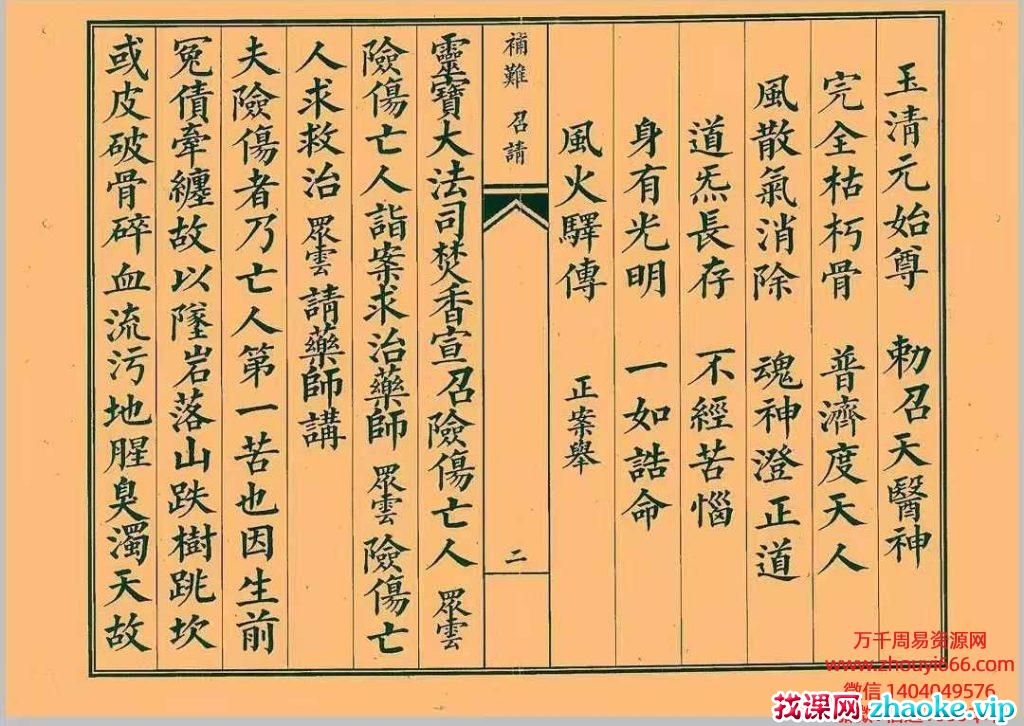 玉清元始尊 勅召天醫神
完全枯朽骨 普濟度天人
風散氣消除 魂神澄正道
道炁長存 不經苦惱
身有光明 一如誥命
風火驛傳 正案舉
補難 召請
二
靈寶大法司焚香宣召險傷亡人 眾雲
險傷亡人詣案求治藥師 眾雲 險傷亡
人求救治 眾雲 請藥師講
夫險傷者乃亡人第一苦也因生前
冤債牽纏故以墜岩落山跌樹跳坎
或皮破骨碎血流污地腥臭濁天故
万千周易资源网
www.zhouyi666.com
微信 1404049576
找课网 zhaoke.vip